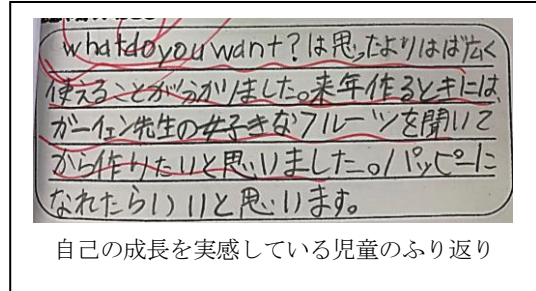 whatdoyou want?は思ったよりはば広く
使えることが分かりました。来年作るときには、
ガーイェン先生の好きなフルーツを聞いて
から作りたいと思いました。ハッピーに
なれたらいいと思います。
自己の成長を実感している児童のふり返り